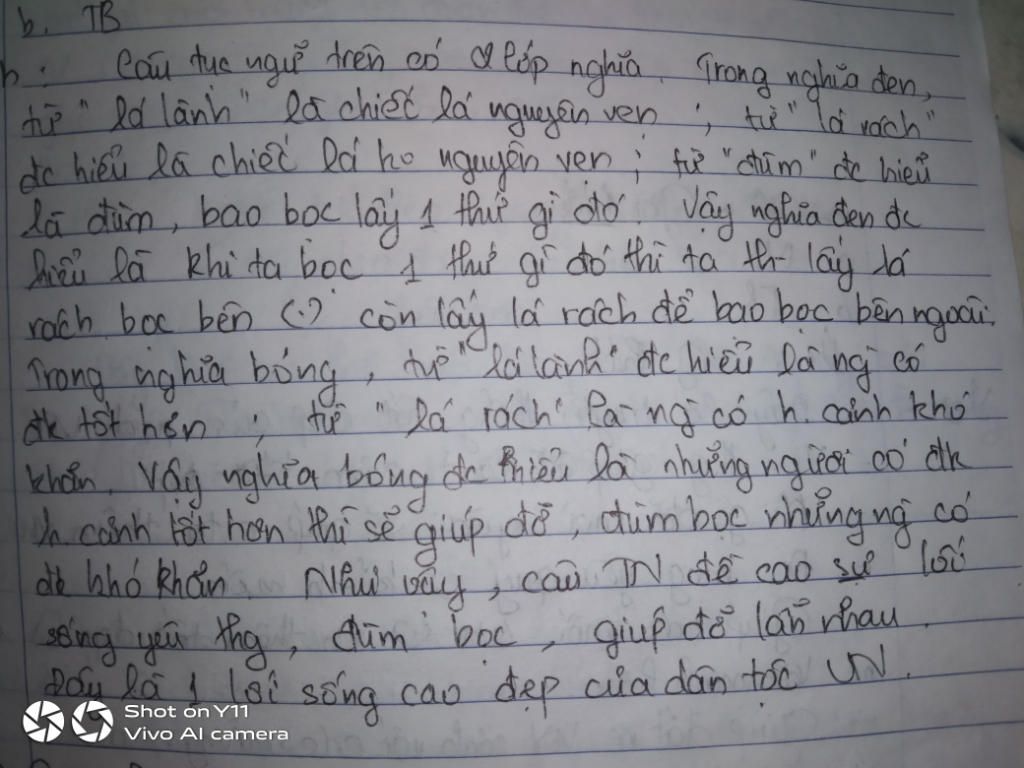 b. TB
Câu tục ngữ trên có 2 lớp nghĩa. Trong nghĩa đen,
từ "lá lành" là chiếc lá nguyên vẹn ; từ "lá rách"
đc hiểu là chiếc lá ko nguyên vẹn ; từ "đùm" đc hiểu
là đùm, bao bọc lấy 1 thứ gì đó. Vậy nghĩa đen đc
hiểu là khi ta bọc 1 thứ gì đó thì ta th lấy lá
rách bọc bên (.) còn lấy lá rách để bao bọc bên ngoài.
Trong nghĩa bóng, từ "lá lành" đc hiểu là ng có
đk tốt hơn ; từ "lá rách" là ng có h. cảnh khó
khăn. Vậy nghĩa bóng đc hiểu là những người có đk
h. cảnh tốt hơn thì sẽ giúp đỡ, đùm bọc những ng có
đk khó khăn. Như vậy, câu TN đề cao sự lối
sống yêu thg, đùm bọc, giúp đỡ lẫn nhau.
Đây là 1 lối sống cao đẹp của dân tộc VN.
Shot on Y11
Vivo AI camera